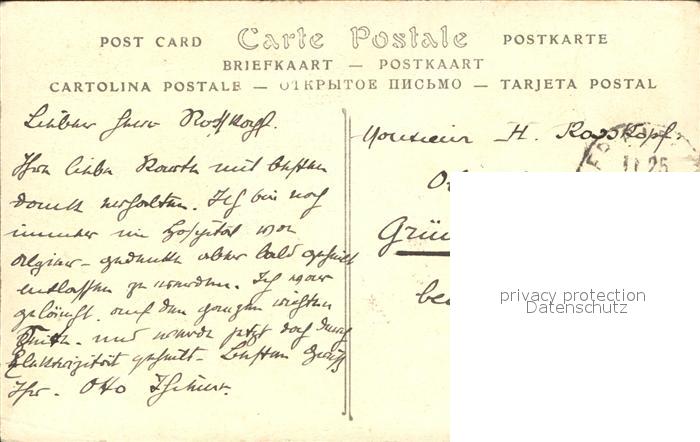 POST CARD Carte Postale POSTKARTE
BRIEFKAART — POSTKAART
CARTOLINA POSTALE — ОТКРЫТОЕ ПИСЬМО — TARJETA POSTAL
Lieber Herr Rosskopf.
Ihre liebe Karte mit bestem
dank erhalten. Ich bin noch
immer im Hospital von
Algier - gedenke aber bald geheilt
entlassen zu werden. Ich war
gelähmt auf der ganzen rechten
Seite - und werde jetzt doch durch
Elektrizität geheilt - Besten Gruß
Ihr Otto
Monsieur H. Rosskopf
11 25
Grü
be
privacy protection
Datenschutz